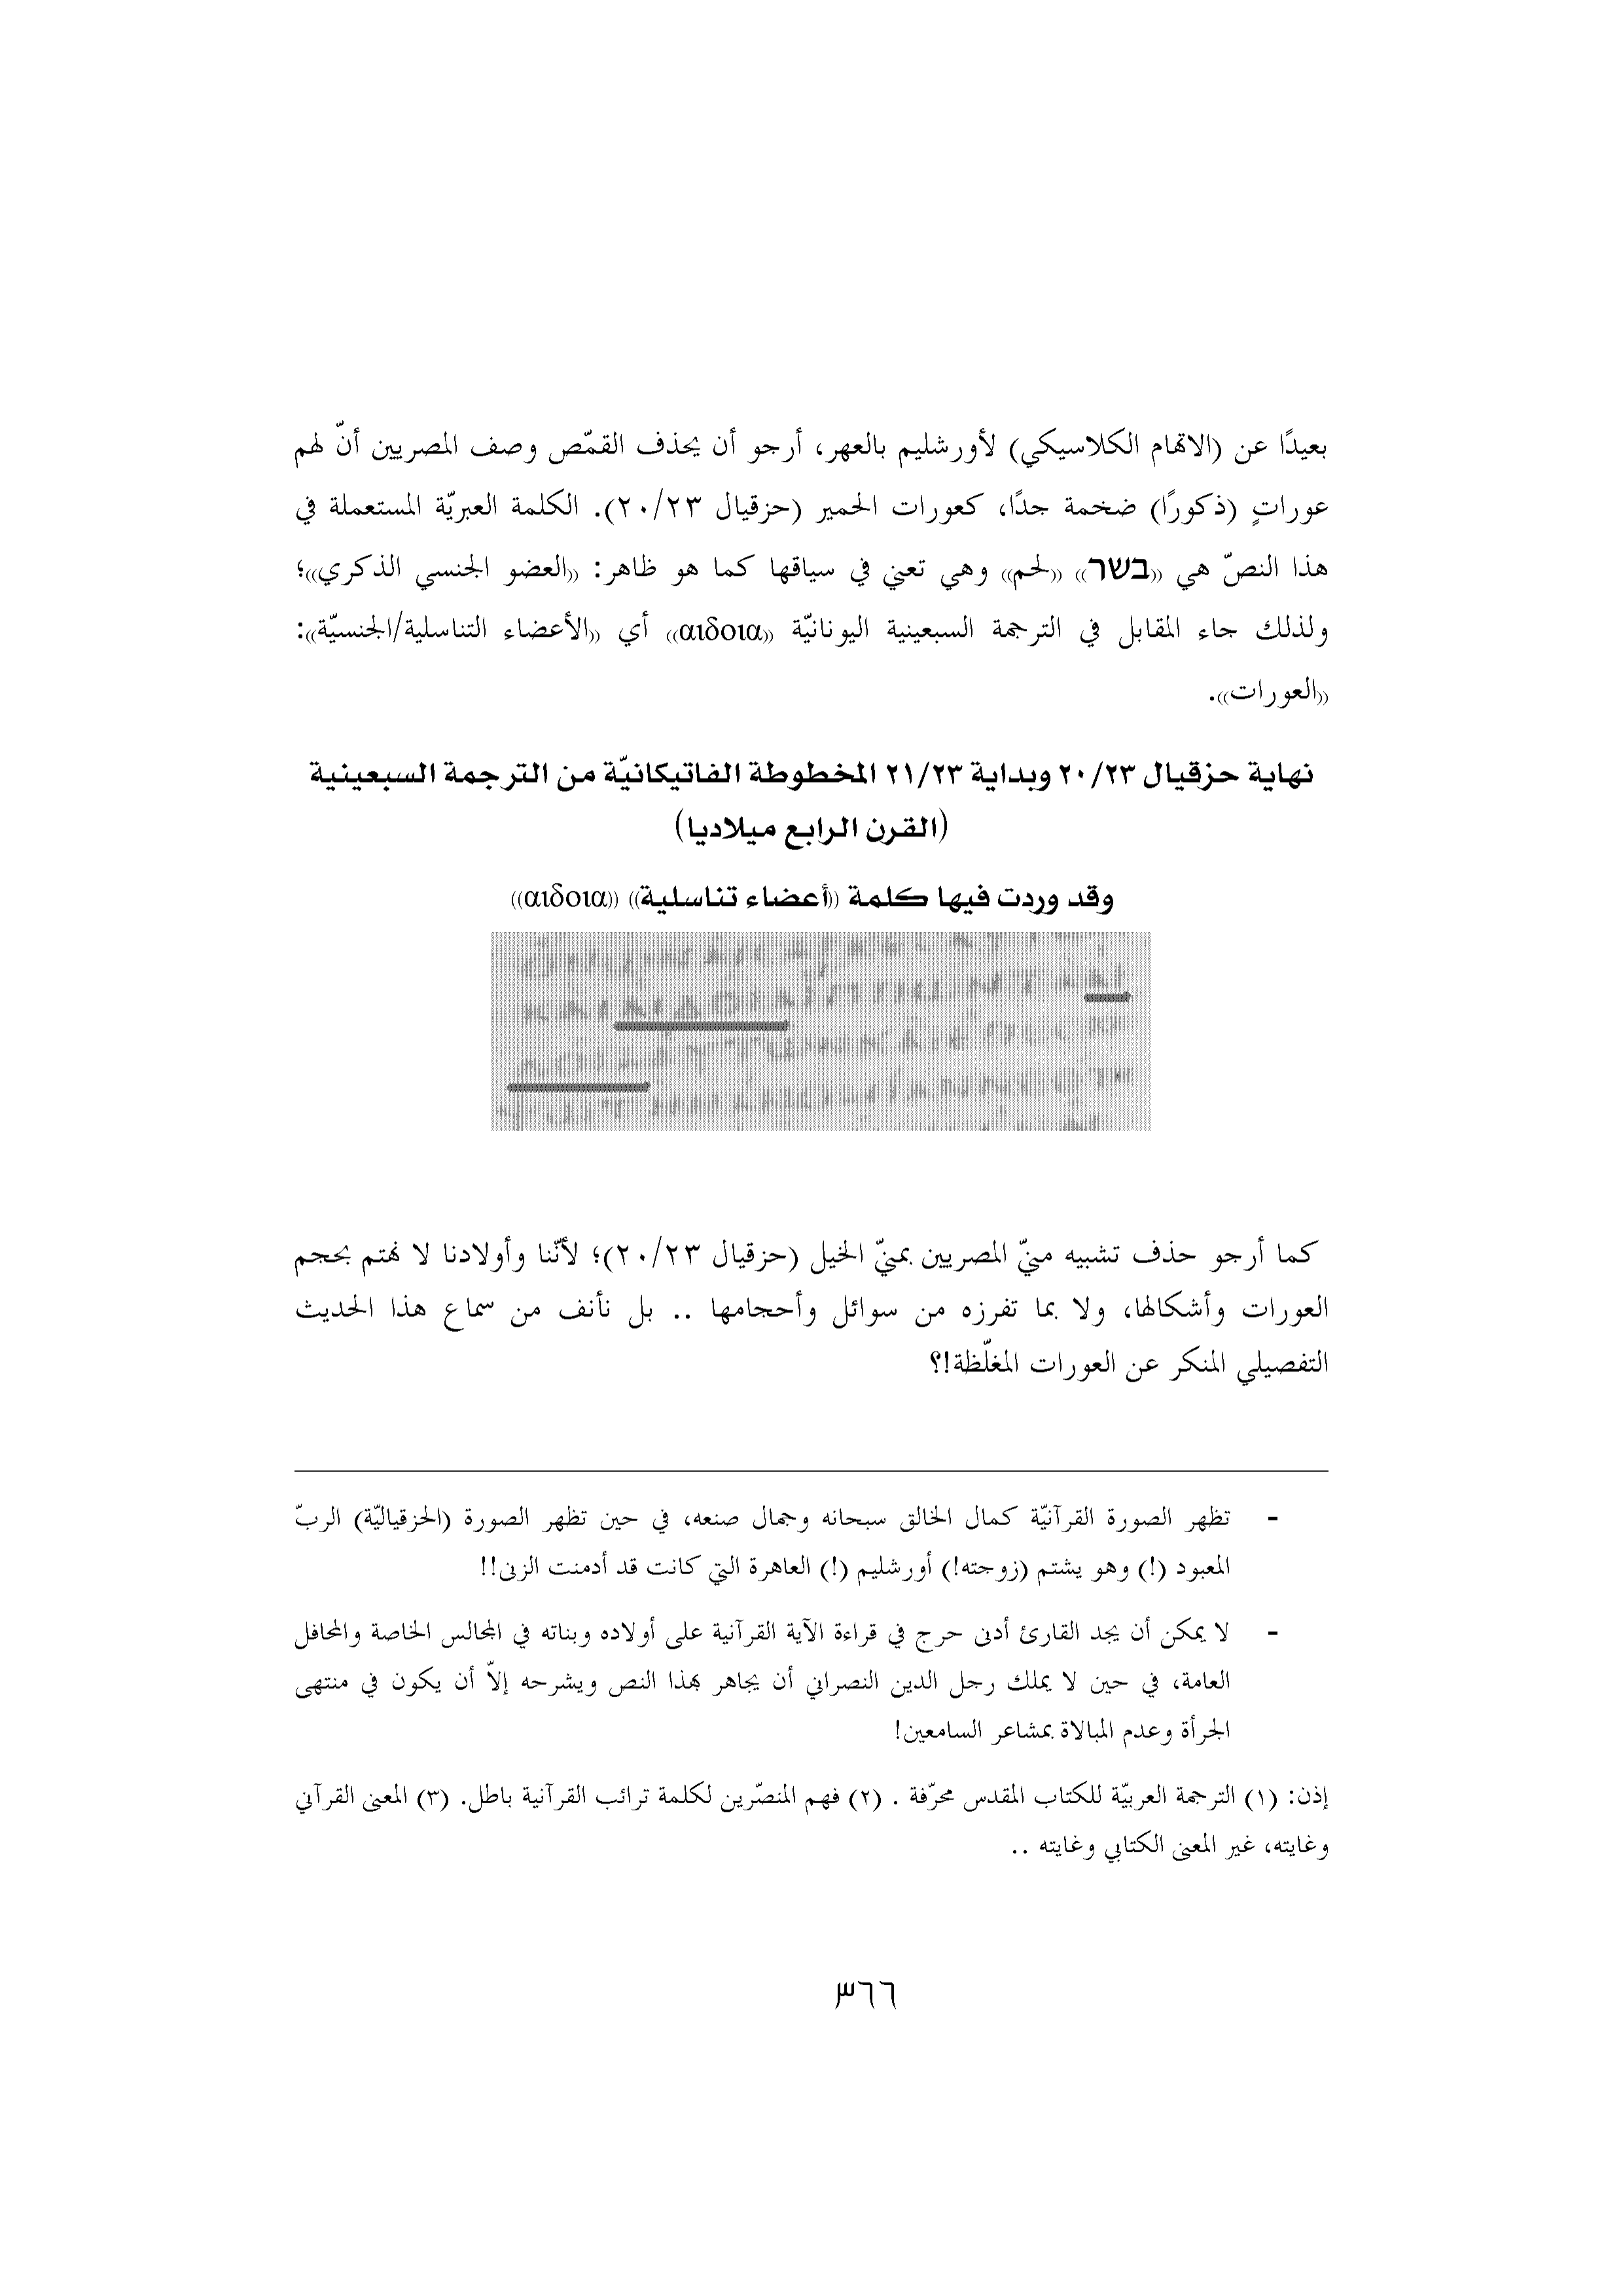 بعيدًا عن (الاتهام الكلاسيكي) لأورشليم بالعهر، أرجو أن يحذف القمّص وصف المصريين أنّ لهم
عوراتٍ (ذكورًا) ضخمة جدًا، كعورات الحمير (حزقيال ٢٠/٢٣). الكلمة العبريّة المستعملة في
هذا النصّ هي ((בשר)) ((لحم)) وهي تعني في سياقها كما هو ظاهر: ((العضو الجنسي الذكري))؛
ولذلك جاء المقابل في الترجمة السبعينية اليونانيّة ((αιδοια)) أي ((الأعضاء التناسلية/الجنسيّة)):
((العورات)).
نهاية حزقيال ٢٠/٢٣ وبداية ٢١/٢٣ المخطوطة الفاتيكانيّة من الترجمة السبعينية
(القرن الرابع ميلاديا)
وقد وردت فيها كلمة ((أعضاء تناسلية)) ((αιδοια))
كما أرجو حذف تشبيه منيّ المصريين بمنيّ الخيل (حزقيال ٢٠/٢٣)؛ لأنّنا وأولادنا لا نهتم بحجم
العورات وأشكالها، ولا بما تفرزه من سوائل وأحجامها .. بل نأنف من سماع هذا الحديث
التفصيلي المنكر عن العورات المغلّظة!؟
- تظهر الصورة القرآنيّة كمال الخالق سبحانه وجمال صنعه، في حين تظهر الصورة (الحزقياليّة) الربّ
المعبود (!) وهو يشتم (زوجته!) أورشليم (!) العاهرة التي كانت قد أدمنت الزنى!!
- لا يمكن أن يجد القارئ أدنى حرج في قراءة الآية القرآنية على أولاده وبناته في المجالس الخاصة والمحافل
العامة، في حين لا يملك رجل الدين النصراني أن يجاهر بهذا النص ويشرحه إلاّ أن يكون في منتهى
الجرأة وعدم المبالاة بمشاعر السامعين!
إذن: (١) الترجمة العربيّة للكتاب المقدس محرّفة . (٢) فهم المنصّرين لكلمة ترائب القرآنية باطل. (٣) المعنى القرآني
وغايته، غير المعنى الكتابي وغايته ..
٣٦٦